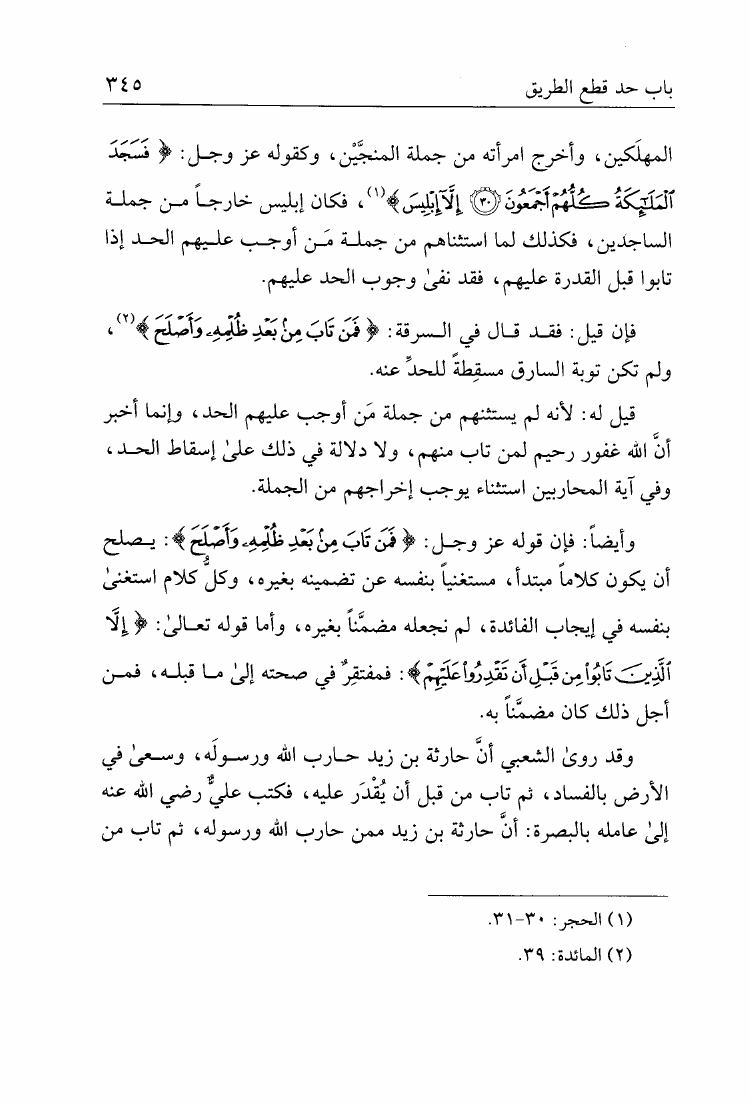 باب حد قطع الطريق ٣٤٥
المهلَكين، وأخرج امرأته من جملة المنجَّيْن، وكقوله عز وجل: ﴿ فَسَجَدَ
ٱلْمَلَٰٓئِكَةُ كُلُّهُمْ أَجْمَعُونَ ۝٣٠ إِلَّآ إِبْلِيسَ ﴾(١)، فكان إبليس خارجاً من جملة
الساجدين، فكذلك لما استثناهم من جملة مَن أوجب عليهم الحد إذا
تابوا قبل القدرة عليهم، فقد نفىٰ وجوب الحد عليهم.
فإن قيل: فقد قال في السرقة: ﴿ فَمَن تَابَ مِنۢ بَعْدِ ظُلْمِهِۦ وَأَصْلَحَ ﴾(٢)،
ولم تكن توبة السارق مسقِطةً للحدِّ عنه.
قيل له: لأنه لم يستثنهم من جملة مَن أوجب عليهم الحد، وإنما أخبر
أنَّ الله غفور رحيم لمن تاب منهم، ولا دلالة في ذلك علىٰ إسقاط الحد،
وفي آية المحاربين استثناء يوجب إخراجهم من الجملة.
وأيضاً: فإن قوله عز وجل: ﴿ فَمَن تَابَ مِنۢ بَعْدِ ظُلْمِهِۦ وَأَصْلَحَ ﴾: يصلح
أن يكون كلاماً مبتدأ، مستغنياً بنفسه عن تضمينه بغيره، وكلُّ كلام استغنىٰ
بنفسه في إيجاب الفائدة، لم نجعله مضمَّناً بغيره، وأما قوله تعالىٰ: ﴿ إِلَّا
ٱلَّذِينَ تَابُوا۟ مِن قَبْلِ أَن تَقْدِرُوا۟ عَلَيْهِمْ ﴾: فمفتقِرٌ في صحته إلىٰ ما قبله، فمن
أجل ذلك كان مضمَّناً به.
وقد روىٰ الشعبي أنَّ حارثة بن زيد حارب الله ورسولَه، وسعىٰ في
الأرض بالفساد، ثم تاب من قبل أن يُقْدَر عليه، فكتب عليٌّ رضي الله عنه
إلىٰ عامله بالبصرة: أنَّ حارثة بن زيد ممن حارب الله ورسوله، ثم تاب من
(١) الحجر: ٣٠-٣١.
(٢) المائدة: ٣٩.